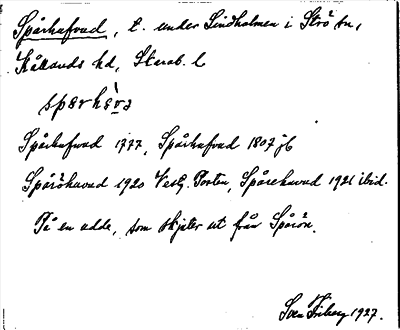 Spårhufvud, t. under Lindholmen i Strö sn,
Kållands hd, Skarab. l
Spårhufvud 1777, Spårhufvud 1807 jb
Spåröhuvud 1920 Vestg. Posten, Spårehuvud 1921 ibid.
På en udde, som skjuter ut från Spårön.
Sven Friberg 1927.